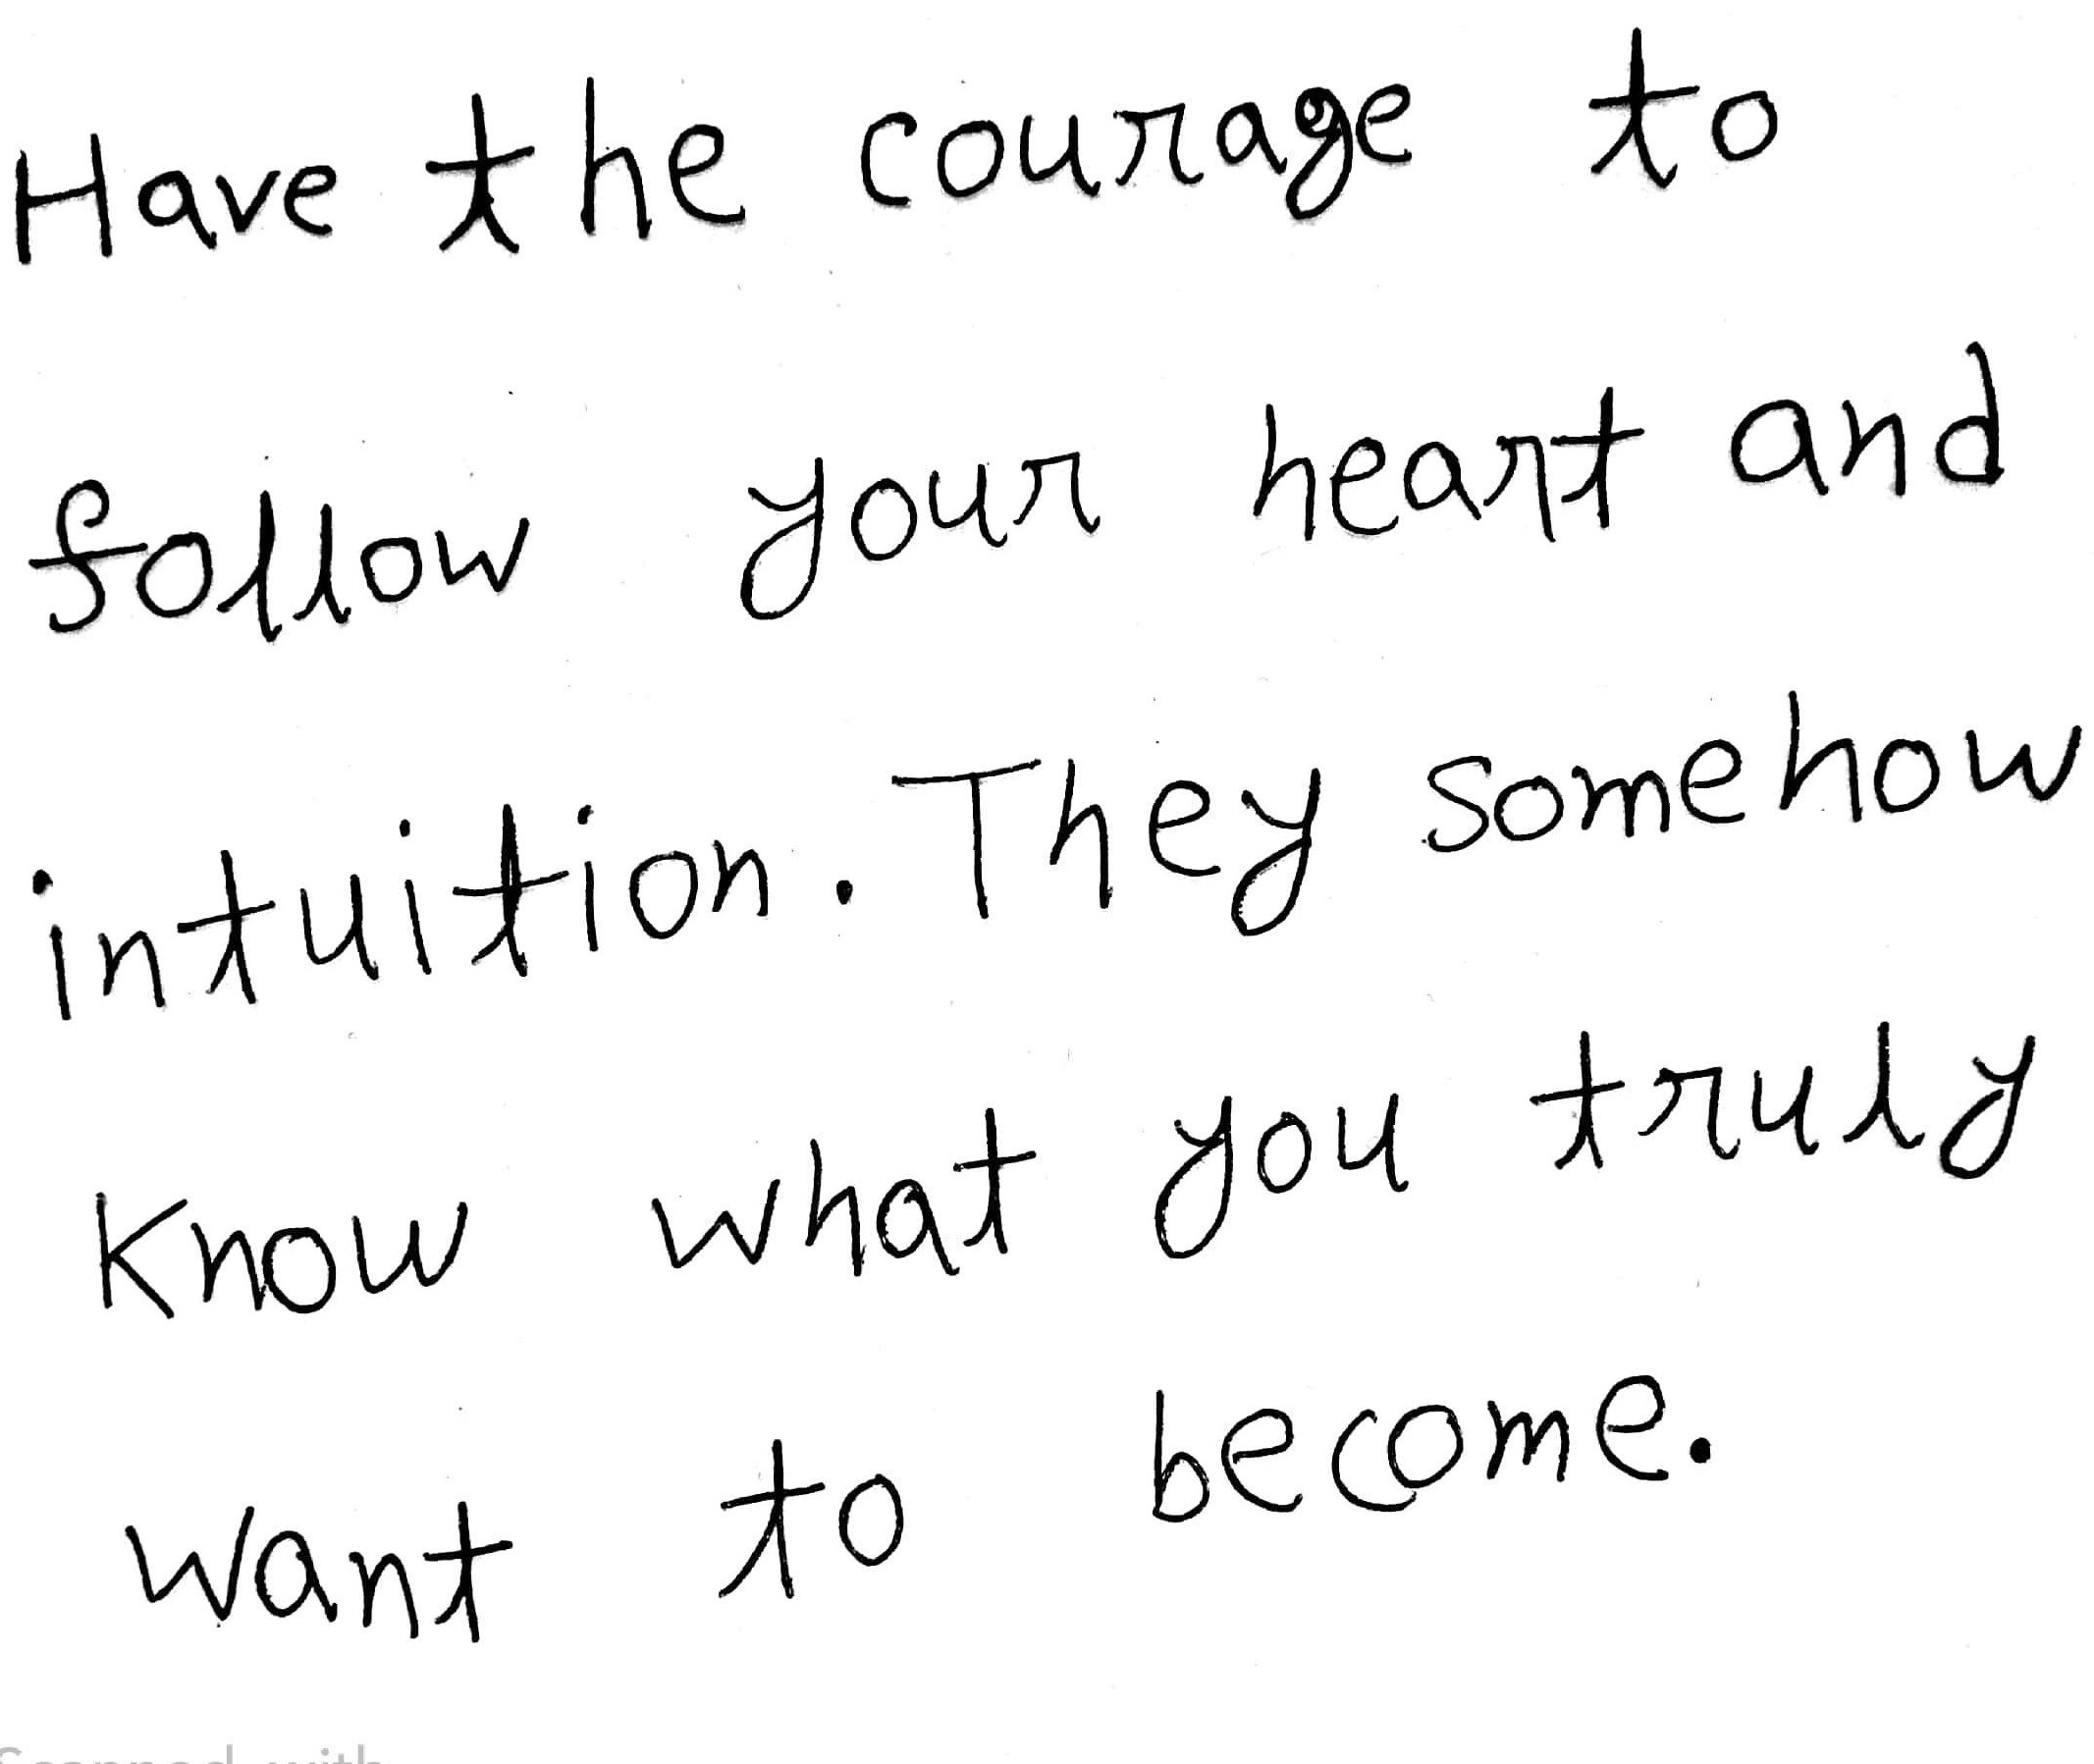 Have the courage to
follow your heart and
intuition. They somehow
know what you truly
want to become.
Scanned with